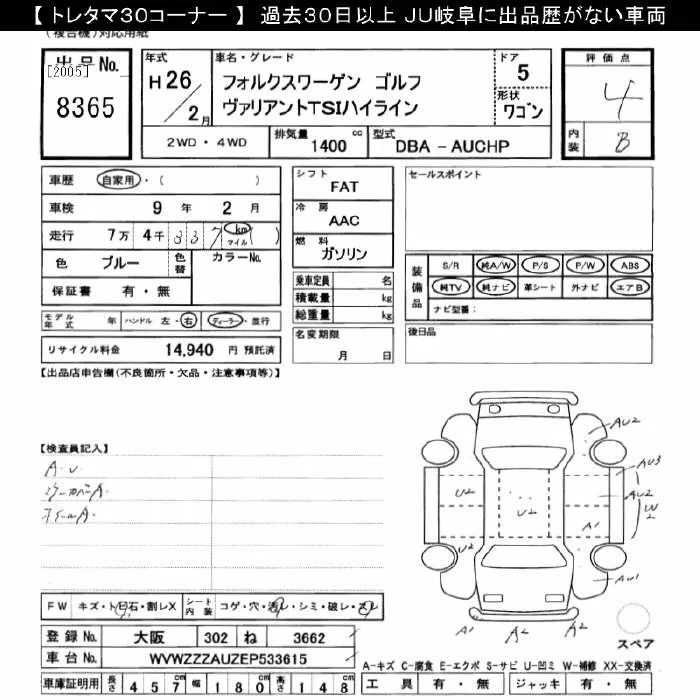 【 トレタマ30コーナー 】 過去30日以上 JU岐阜に出品歴がない車両
(複合機)対応用紙
出品No.
[2005]
8365
年式
H26/2月
車名・グレード
フォルクスワーゲン ゴルフ
ヴァリアントTSIハイライン
ドア
5
形状
ワゴン
評価点
4
内装
B
2WD ・ 4WD
排気量
1400 cc
型式
DBA - AUCHP
車歴 自家用・( )
車検 9 年 2 月
走行 7万 4千 837 km マイル ( )
色 ブルー
色替
カラーNo.
保証書 有・無
モデル年式 年
ハンドル 左・右
ディーラー・並行
リサイクル料金 14,940 円 預託済
シフト
FAT
冷房
AAC
燃料
ガソリン
乗車定員 名
積載量 kg
総重量 kg
名変期限
月 日
セールスポイント
装備品
S/R 純A/W P/S P/W ABS
純TV 純ナビ 革シート 外ナビ エアB
ナビ型番:
後日品
【出品店申告欄(不良箇所・欠品・注意事項等)】
【検査員記入】
A・U
FW キズ・トビ石・割レX
シート内装 コゲ・穴・汚レ・シミ・破レ・スレ
登録No. 大阪 302 ね 3662
車台No. WVWZZZAUZEP533615
車庫証明用 長さ 457 幅 180 高さ 148
AU2
AU3
AU2
W2
U2
U2
A1
U2
AU1
A1
A2
A2
スペア
A-キズ C-腐食 E-エクボ S-サビ U-凹ミ W-補修 XX-交換済
工具 有・無 ジャッキ 有・無